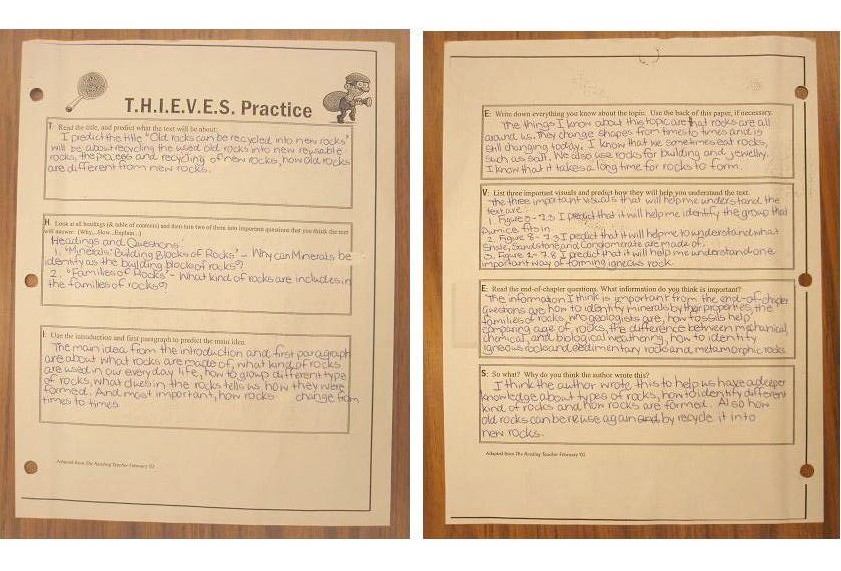 T.H.I.E.V.E.S. Practice
T: Read the title, and predict what the text will be about:
I predict the title "Old rocks can be recycled into new rocks"
will be about recycling the used old rocks into new reusable
rocks, the process and recycling of new rocks, how old rocks
are different from new rocks.
H: Look at all headings (& table of contents) and then turn two of them into important questions that you think the text
will answer: (Why,...How...Explain...)
Headings and Questions:
1. "Minerals: Building Blocks of Rocks" - Why can Minerals be
identify as the building block of rocks?
2. "Families of Rocks" - What kind of rocks are includes in
the families of rocks?
I: Use the introduction and first paragraph to predict the main idea.
The main idea from the introduction and first paragraph
are about what rocks are made of, what kind of rocks
are used in our everyday life, how to group different type
of rocks, what clues in the rocks tells us how they were
formed. And most important, how rocks change from
times to times
Adapted from The Reading Teacher February '02
E: Write down everything you know about the topic. Use the back of this paper, if necessary.
The things I know about this topic are that rocks are all
around us. They change shapes from times to times and is
still changing today. I know that we sometimes eat rocks,
such as salt. We also use rocks for building and jewelry.
I know that it takes a long time for rocks to form.
V: List three important visuals and predict how they will help you understand the text.
The three important visuals that will help me understand the
text are:
1. Figure 2 - 7.3 I predict that it will help me identify the group that
Pumice fits in.
2. Figure 8 - 7.3 I predict that it will help me to understand what
Shale, Sandstone and Conglomerate are made of.
3. Figure 2 - 7.8 I predict that it will help me understand one
important way of forming igneous rock
E: Read the end-of-chapter questions. What information do you think is important?
The information I think is important from the end-of-chapter
questions are how to identify minerals by their properties, the
families of rocks, who geologists are, how fossils help
comparing age of rocks, the difference between mechanical,
chemical, and biological weathering, how to identify
igneous rock and sedimentary rock and metamorphic rocks
S: So what? Why do you think the author wrote this?
I think the author wrote this to help us have a deeper
knowledge about types of rocks, how to identify different
kind of rocks and how rocks are formed. Also how
old rocks can be reuse again by recycle it into
new rocks.
Adapted from The Reading Teacher February '02